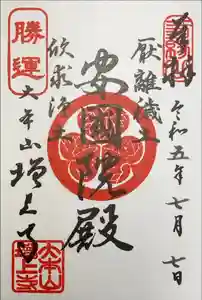 奉拝
令和五年七月七日
厭離穢土
安国院殿
欣求浄土
勝運
大本山増上寺
大本山
増上寺